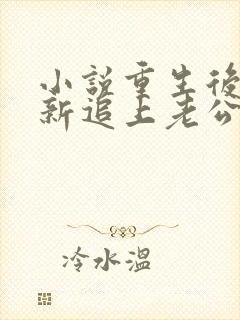 小說重生後
新追上老公
冷水溫